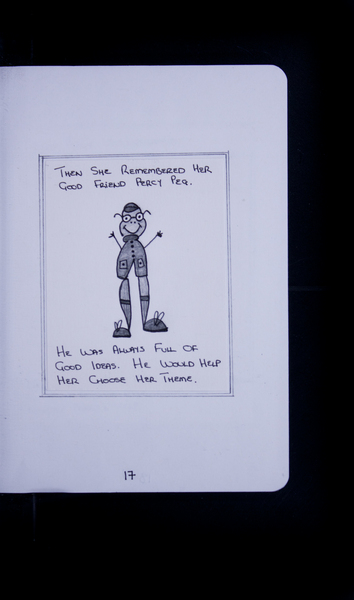 Then She Remembered Her
Good Friend Percy Peg.
He was Always Full of
Good Ideas. He Would Help
Her Choose Her Theme.
17